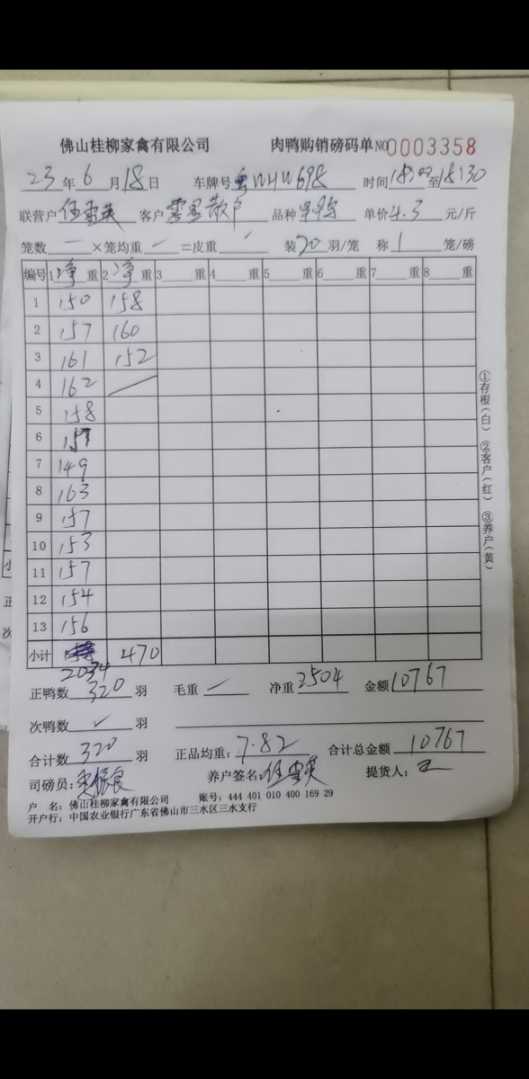 佛山桂柳家禽有限公司 肉鸭购销磅码单 NO 0003358
23年6月18日 车牌号 698 时间 至18:30
联营户 伍雪英 客户 散户 品种 单价4.3元/斤
笼数 一 ×笼均重 一 =皮重 装20羽/笼 称1笼/磅
编号 1净重 2净重 3 重 4 重 5 重 6 重 7 重 8 重
1 150 158
2 157 160
3 161 152
4 162
5 158
6
7 149
8 163
9 157
10 153
11 157
12 154
13 156
小计 2034 470
正鸭数 320 羽 毛重 净重 2504 金额 10767
次鸭数 羽
合计数 320 羽 正品均重: 7.82 合计总金额 10767
司磅员: 养户签名: 伍雪英 提货人:
户 名: 佛山桂柳家禽有限公司 账号: 444 401 010 400 169 29
开户行: 中国农业银行广东省佛山市三水区三水支行
①存根(白) ②客户(红) ③养户(黄)